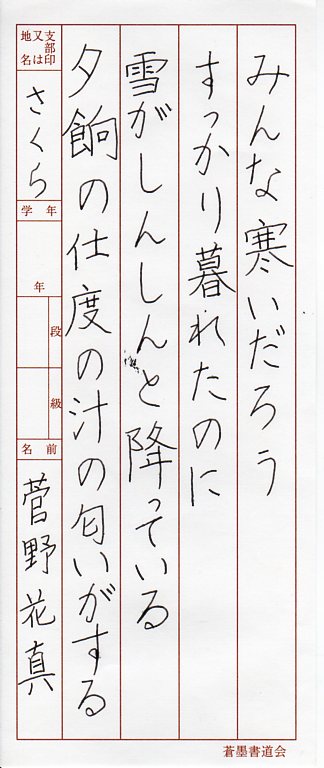 みんな寒いだろう
すっかり暮れたのに
雪がしんしんと降っている
夕餉の仕度の汁の匂いがする
支部印
又は
地名
さくら
学年
年
段
級
名前
菅野花真
蒼墨書道会